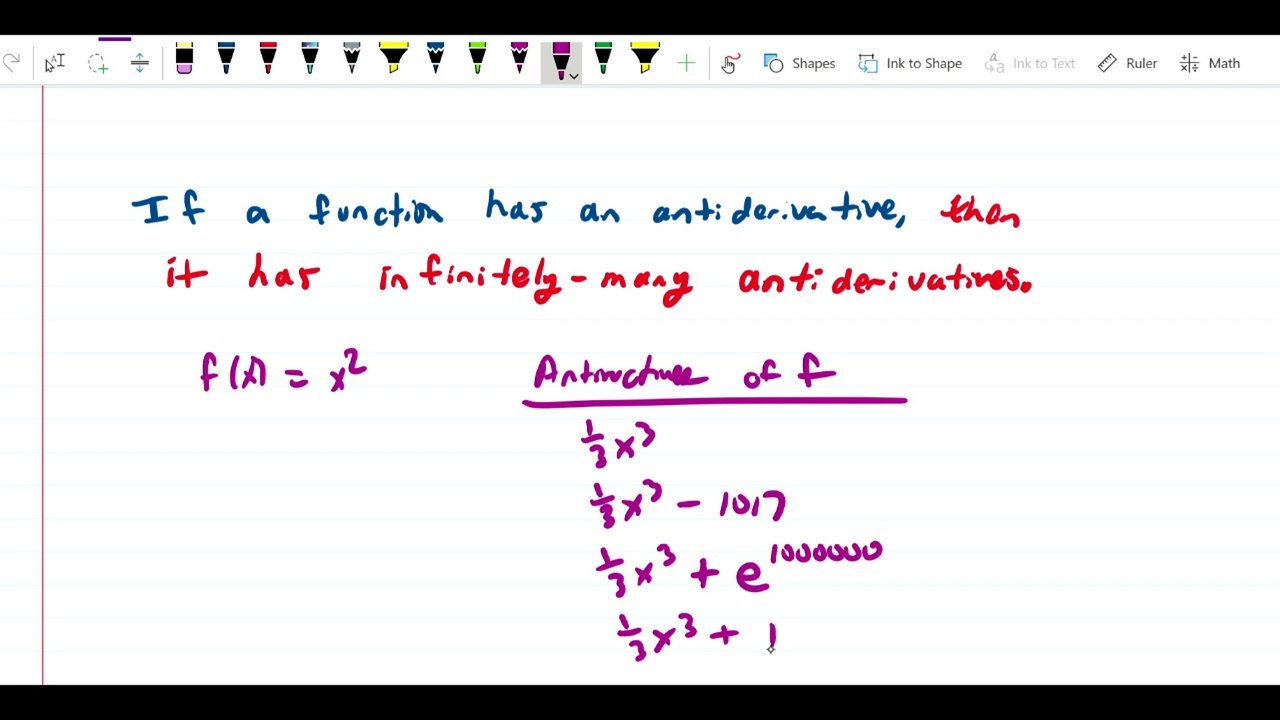 Shapes Ink to Shape Ink to Text Ruler Math
If a function has an antiderivative, then
it has infinitely-many antiderivatives.
f(x) = x² of f
⅓x³
⅓x³ - 1017
⅓x³ + e¹⁰⁰⁰⁰⁰⁰
⅓x³ + 1